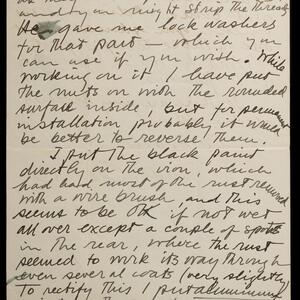 and you might strip the threads
He gave me lock washers
for that part – which you
can use if you wish. While
working on it I have put
the nuts on with the rounded
surface inside, but for permanent
installation probably it would
be better to reverse them.
I put the black paint
directly on the iron, which
had had most of the rust removed
with a wire brush, and this
seems to be OK if not wet
all over except a couple of spots
in the rear, where the rust
seemed to work its way through
even several coats (very slightly)
To rectify this I put aluminum